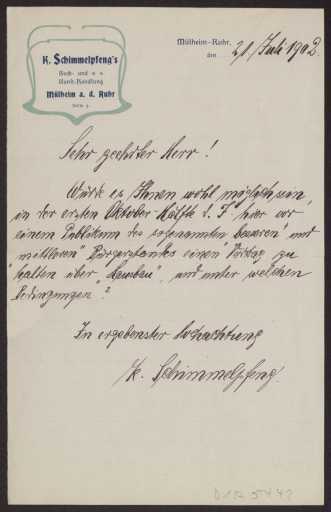 K. Schimmelpfeng's
Buch- und
Kunst-Handlung
Mülheim a. d. Ruhr
Mülheim-Ruhr,
den 21. Juli 1902.
Sehr geehrter Herr!
Würde es Ihnen wohl möglich sein,
in der ersten Oktober Hälfte d. J. hier vor
einem Publikum des sogenannten "besseren" und
"mittleren" Bürgerstandes einen Vortrag zu
halten über und unter welchen
Bedingungen?
In ergebenster Hochachtung
K. Schimmelpfeng.